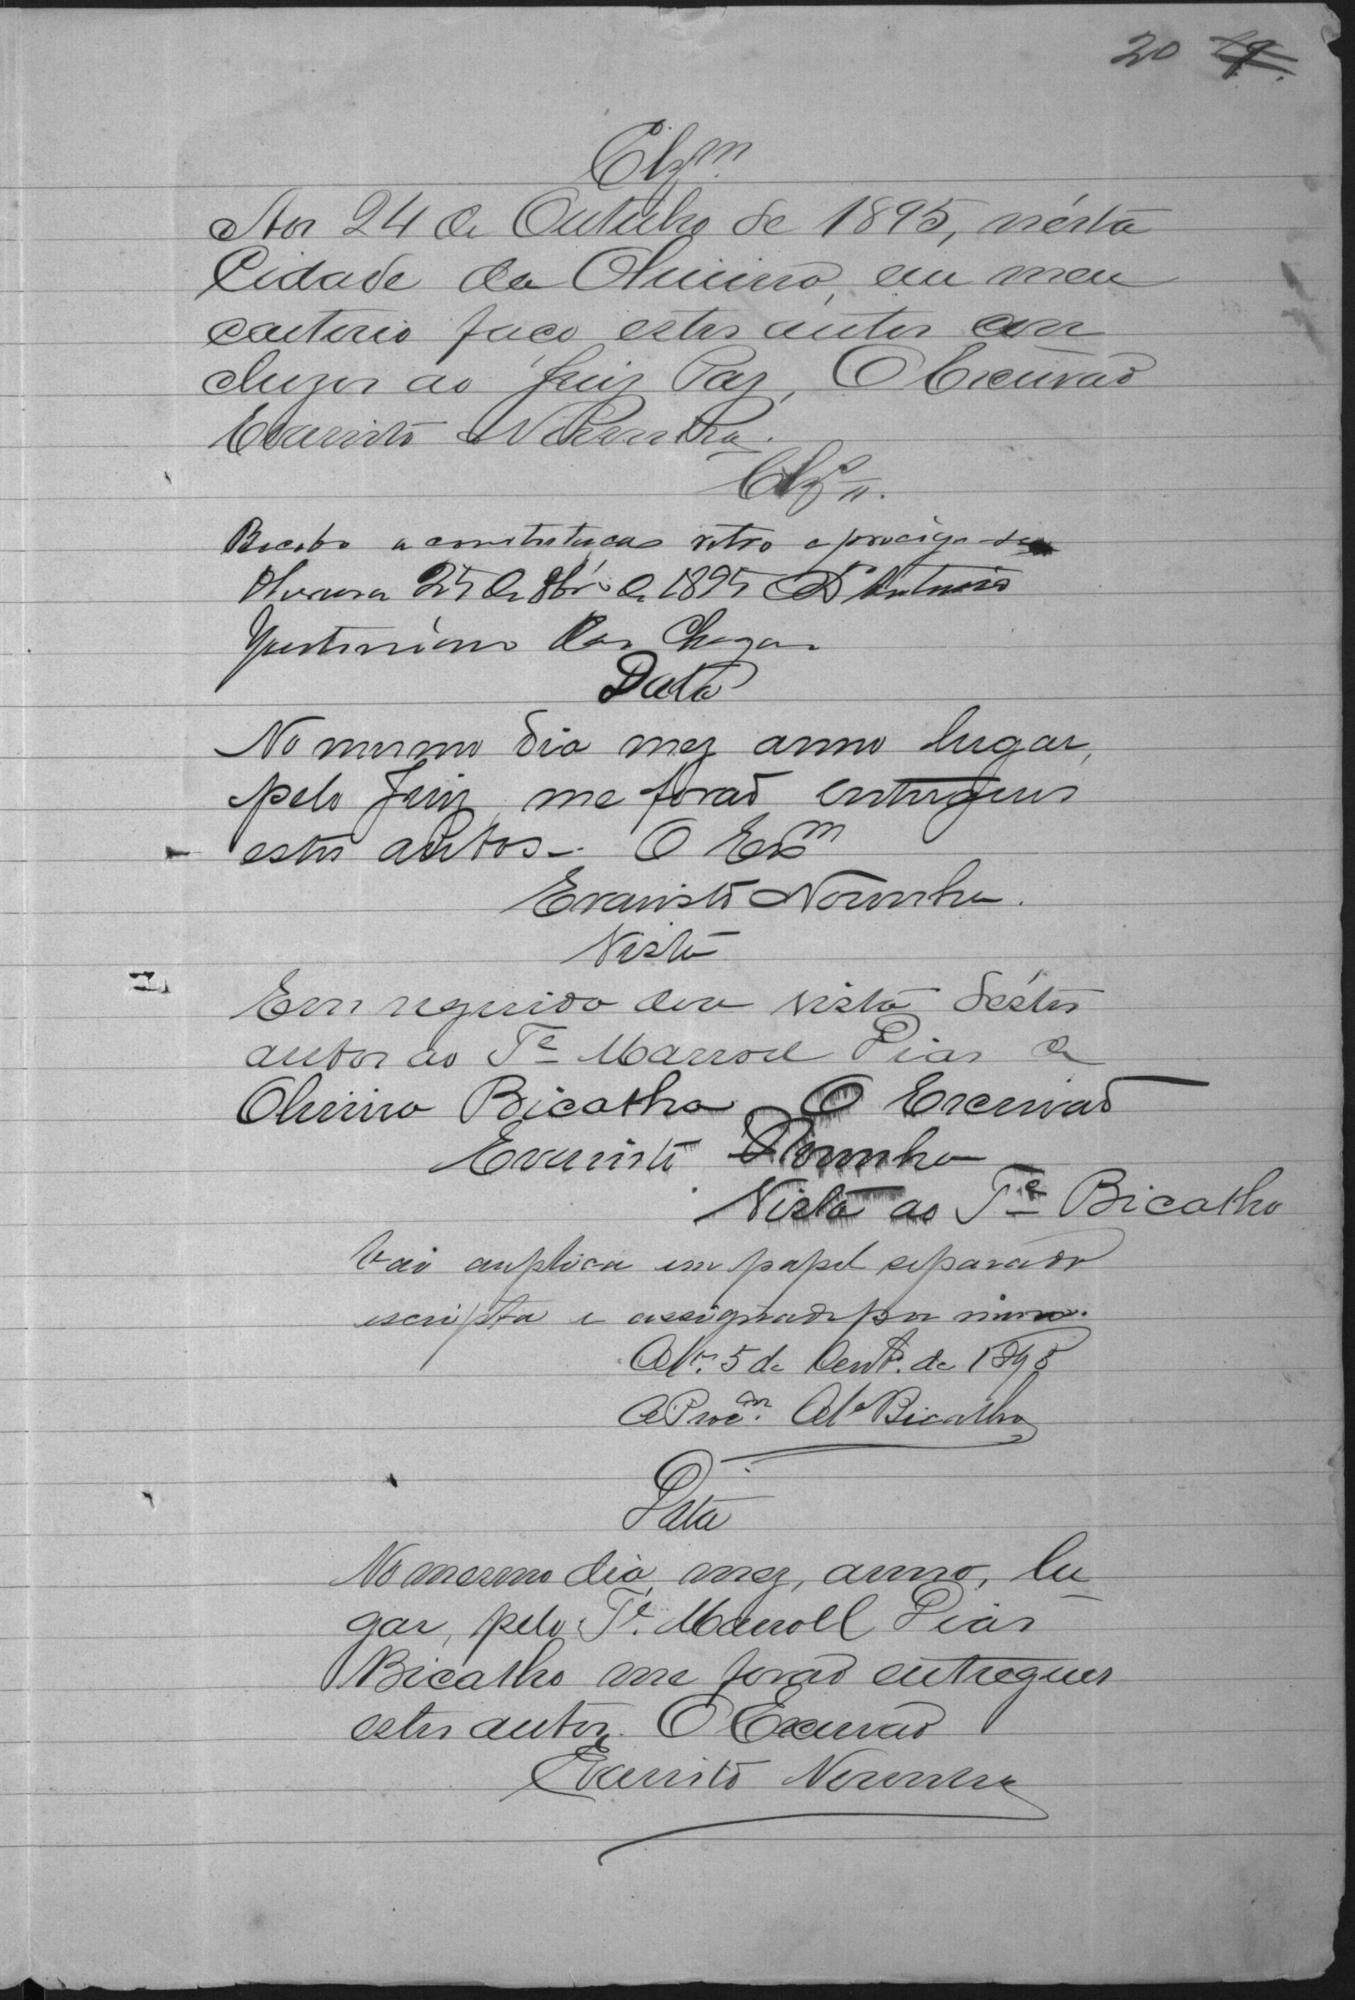 20 19.
Clzm
Aos 24 de Outubro de 1895, nésta
Cidade da Oliveira, em meu
cartorio faço estes autos con
cluzos ao Juiz Paz, O Escrivaõ
Evaristo Noronha.
Clzos.
Recebo a contestação retro e prociga-se
Oliveira 25 de 8bro de 1895 Antonio
Justiniano das Chagas
Data
No mesmo dia mez anno lugar,
pelo Juiz me foraõ entregues
estes autos. O Escm
Evaristo Noronha.
Vista
Em seguida dou vista déstes
autos ao Te Manoel Dias de
Oliveira Bicalho O Escrivaõ
Evaristo Noronha
Vista ao Te Bicalho
Vai a replica em papel separado
escripta e assignada por mim.
5 de de 1895
O Procm. Bicalho
Data
No mesmo dia, mez, anno, lu-
gar, pelo Te. Manoel Dias
Bicalho me foraõ entregues
estes autos. O Escrivaõ
Evaristo Noronha